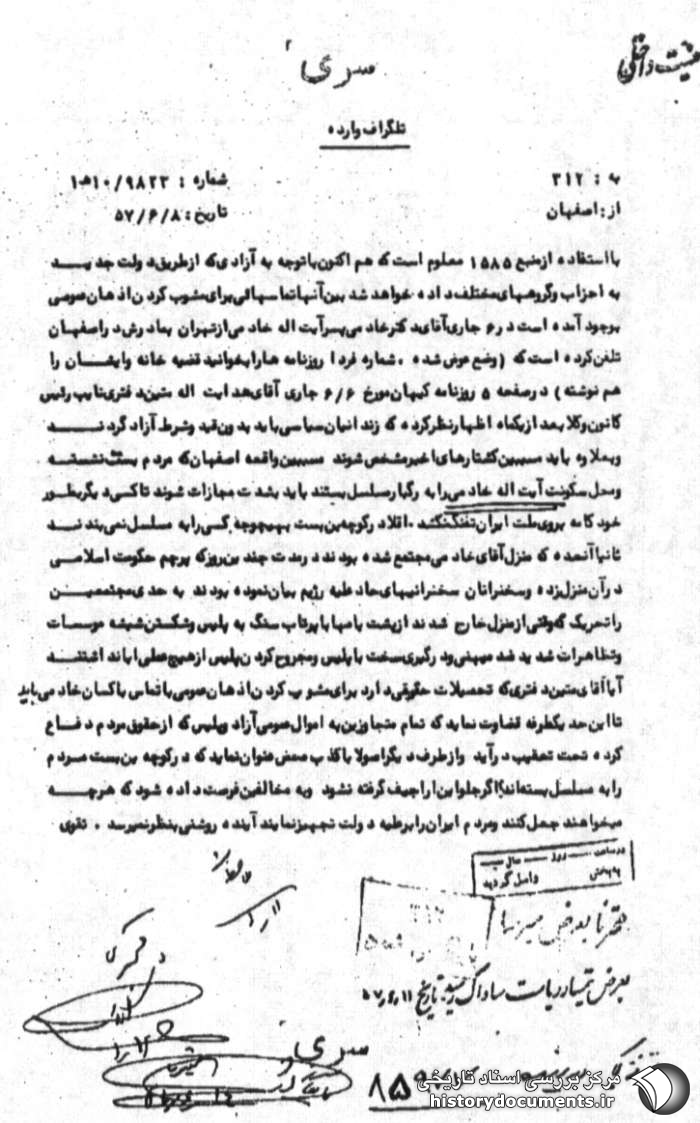 سری
تلگراف وارده
به : ۳۱۲
شماره : ۹۸۲۳/۱۰هـ۱
از : اصفهان
تاریخ : ۵۷/۶/۸
با استفاده از منبع ۱۵۸۵ معلوم است که هم اکنون با توجه به آزادی که از طریق دولت جدید
به احزاب و گروههای مختلف داده خواهد شد بین آنها تماسهائی برای مشوب کردن اذهان عمومی
بوجود آمده است در ۶ جاری آقای دکتر خادمی پسر آیت اله خادمی از تهران بمادرش در اصفهان
تلفن کرده است که (وضع عوض شده . شماره فردا روزنامه ها را بخوانید قضیه خانه وایشان را
هم نوشته) در صفحه ۵ روزنامه کیهان مورخ ۶/۶ جاری آقای هدایت اله متین دفتری نایب رئیس
کانون وکلا بعد از یکماه اظهار نظر کرده که زندانیان سیاسی باید بدون قید وشرط آزاد گردند
وبعلاوه باید مسببین کشتارهای اخیر مشخص شوند مسببین واقعه اصفهان که مردم نشسته
ومحل سکونت آیت اله خادمی را به رگبار مسلسل بستند باید بشدت مجازات شوند تا کسی دیگر بطور
خودکامه بروی ملت ایران تفنگ نکشد . اولا در کوچه بن بست بهیچوجه کسی را به مسلسل نمی بندند
ثانیا آنعده که منزل آقای خادمی مجتمع شده بودند در مدت چندین روز که پرچم حکومت اسلامی
در آن منزل زده وسخنرانان سخنرانیهای حاد علیه رژیم بیان نموده بودند به حدی مجتمعین
را تحریک که وقتی از منزل خارج شدند از پشت بامها با پرتاب سنگ به پلیس وشکستن شیشه موسسات
وتظاهرات شدید ضد میهنی ودرگیری سخت با پلیس ومجروح کردن پلیس از هیچ عملی ابا نداشتند
آیا آقای متین دفتری که تحصیلات حقوقی دارد برای مشوب کردن اذهان عمومی با تماس با کسان خادمی باید
تا این حد یکطرفه قضاوت نماید که تمام متجاوزین به اموال عمومی آزاد وپلیس که از حقوق مردم دفاع
کرده تحت تعقیب درآید واز طرف دیگر اصولا با کذب محض عنوان نماید که در کوچه بن بست مردم
را به مسلسل بسته اند؟ اگر جلو این اراجیف گرفته نشود وبه مخالفین فرصت داده شود که هرچه
میخواهند جعل کنند ومردم ایران را بر علیه دولت تجهیز نمایند آینده روشنی بنظر نمیرسد . تقوی
در ساعت روز سال
به بخش واصل گردید
بعرض تیمسار ریاست ساواک رسید . تاریخ
سری
مرکز بررسی اسناد تاریخی
historydocuments.ir